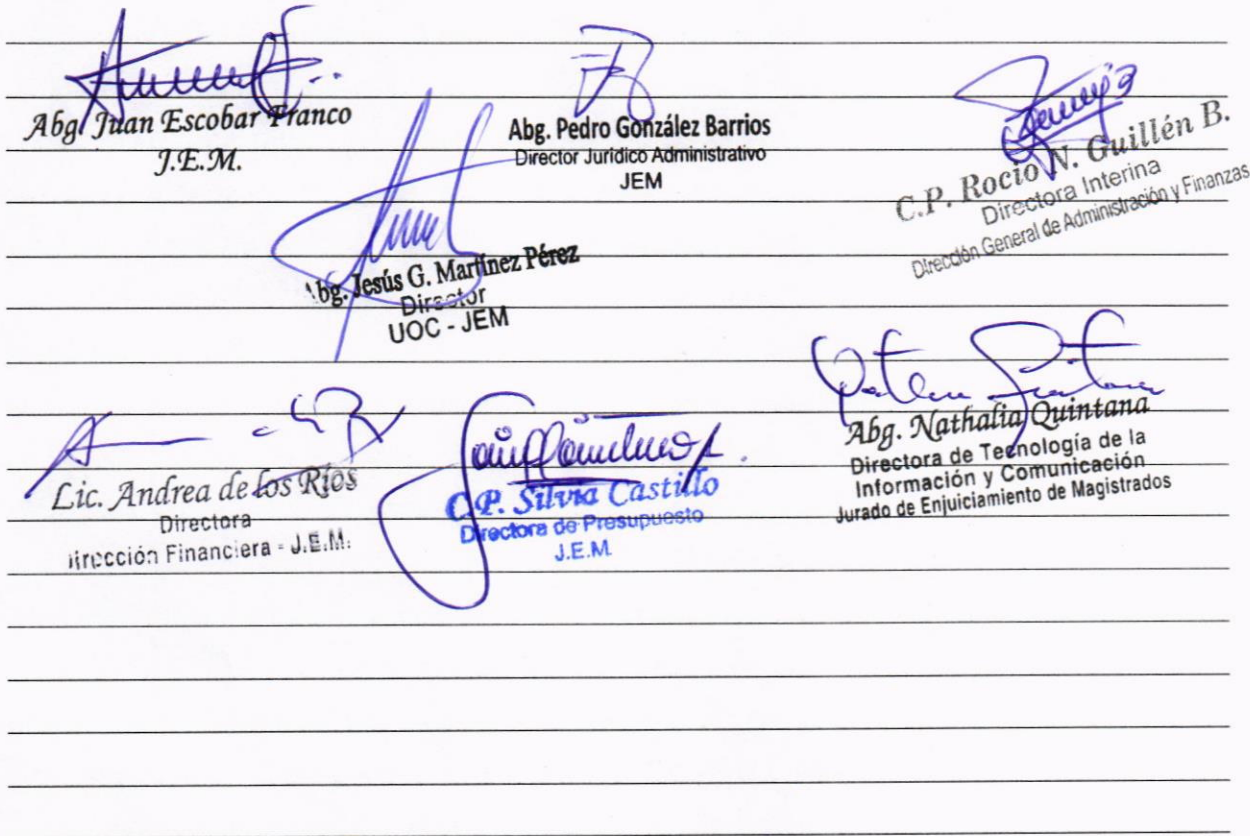 Abg. Juan Escobar Franco
J.E.M.
Abg. Pedro González Barrios
Director Jurídico Administrativo
JEM
C.P. Rocio N. Guillén B.
Directora Interina
Dirección General de Administración y Finanzas
Abg. Jesús G. Martínez Pérez
Director
UOC - JEM
Lic. Andrea de los Ríos
Directora
Dirección Financiera - J.E.M.
C.P. Silvia Castillo
Directora de Presupuesto
J.E.M.
Abg. Nathalia Quintana
Directora de Tecnología de la
Información y Comunicación
Jurado de Enjuiciamiento de Magistrados